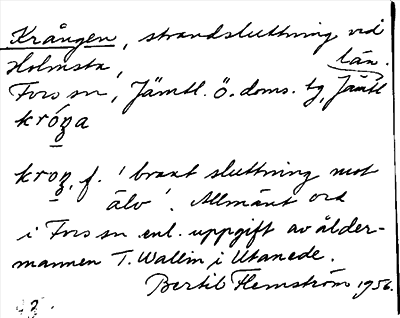 Krången, strandsluttning vid
Holmsta,
Fors sn, Jämtl. ö. doms. tg, Jämtl län.
króŋa
kroŋ, f. 'brant sluttning mot
älv'. Allmänt ord
i Fors sn enl. uppgift av ålder-
mannen T. Wallin i Utanede.
Bertil Flemström 1956.